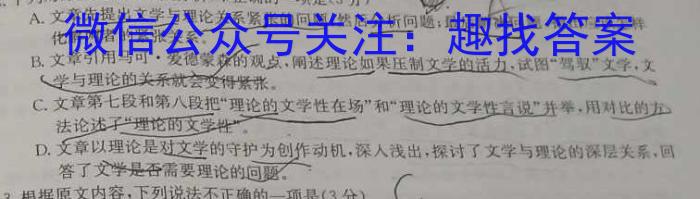 微信公众号关注：趣找答案
A. 文章先提出文学与理论关系紧张的问题，然后分析问题
化解两者的紧张关系。
B. 文章引用马可·爱德蒙森的观点，阐述理论如果压制文学的活力，试图“驾驭”文学，文
学与理论的关系就会变得紧张。
C. 文章第七段和第八段把“理论的文学性在场”和“理论的文学性言说”并举，用对比的方
法论述了“理论的文学性”。
D. 文章以理论是对文学的守护为创作动机，深入浅出，探讨了文学与理论的深层关系，回
答了文学是否需要理论的问题。
3. 根据原文内容，下列说法不正确的一项是(3分)